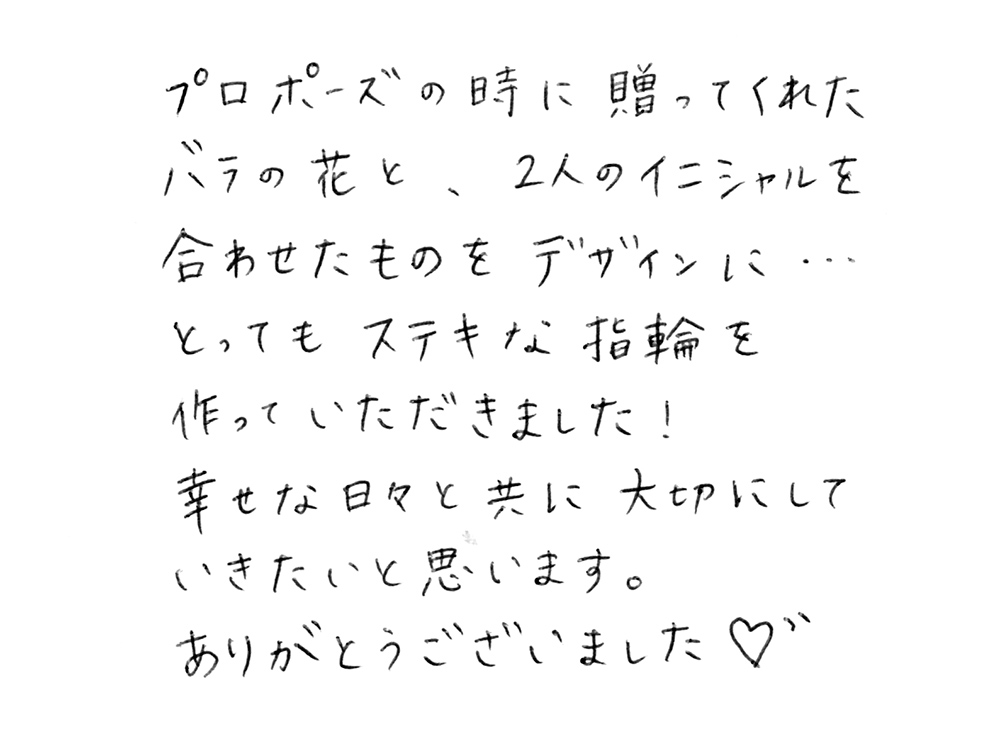 プロポーズの時に贈ってくれた
バラの花と、2人のイニシャルを
合わせたものをデザインに…
とってもステキな指輪を
作っていただきました！
幸せな日々と共に大切にして
いきたいと思います。
ありがとうございました♡゛